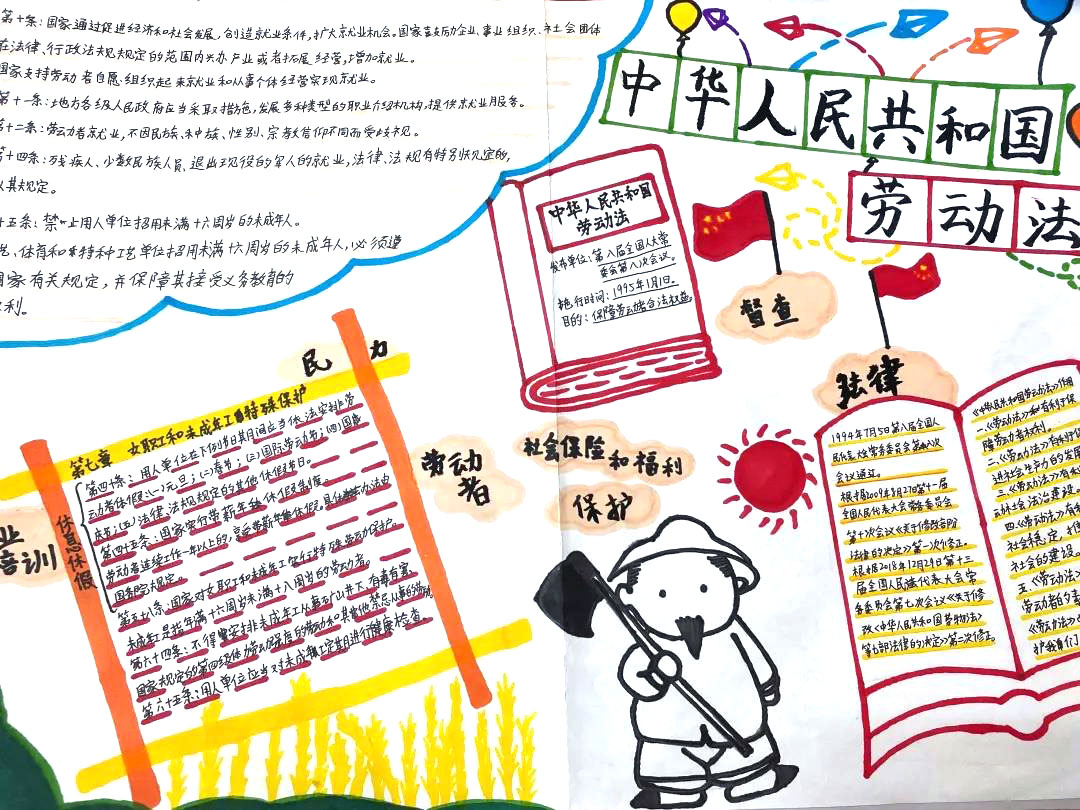 第十条:国家通过促进经济和社会发展,创造就业条件,扩大就业机会。国家鼓励企业、事业组织、社会团体
在法律、行政法规规定的范围内兴办产业或者拓展经营,增加就业。
国家支持劳动者自愿组织起来就业和从事个体经营实现就业。
第十一条:地方各级人民政府应当采取措施,发展多种类型的职业介绍机构,提供就业服务。
第十二条:劳动者就业,不因民族、种族、性别、宗教信仰不同而受歧视。
第十四条:残疾人、少数民族人员、退出现役的军人的就业,法律、法规有特别规定的,
从其规定。
十五条:禁止用人单位招用未满十六周岁的未成年人。
艺、体育和特种工艺单位招用未满十六周岁的未成年人,必须遵
国家有关规定,并保障其接受义务教育的
权利。
中华人民共和国
劳动法
中华人民共和国
劳动法
发布单位:第八届全国人大常
委会第八次会议。
施行时间:1995年1月1日。
目的:保障劳动者合法权益。
督查
法律
民
力
劳动
者
社会保险
和福利
保护
业
培训
休息休假
第七章 女职工和未成年工特殊保护
第四十条:用人单位在下列节日期间应当依法安排劳
动者休假:(一)元旦;(二)春节;(三)国际劳动节;(四)国庆
庆节;(五)法律、法规规定的其他休假节日。
第四十五条:国家实行带薪年休假制度。
劳动者连续工作一年以上的,享受带薪年休假。具体办法由
国务院规定。
第五十八条:国家对女职工和未成年工实行特殊劳动保护。
未成年工是指年满十六周岁未满十八周岁的劳动者。
第六十四条:不得安排未成年工从事矿山井下、有毒有害、
国家规定的第四级体力劳动强度的劳动和其他禁忌从事的劳动。
第六十五条:用人单位应当对未成年工定期进行健康检查。
1994年7月5日第八届全国人
民代表大会常务委员会第八次
会议通过。
根据2009年8月27日第十一届
全国人民代表大会常务委员会
第十次会议《关于修改部分
法律的决定》第一次修正。
根据2018年12月29日第十三
届全国人民代表大会常
务委员会第七次会议《关于修
改《中华人民共和国劳动法》
等七部法律的决定》第二次修正。
《中华人民共和国劳动法》作用
一、《劳动法》有利于保
障劳动者权利。
二、《劳动法》有利于促
进社会生产力的发展
三、《劳动法》有
动社会法治建设。
四、《劳动法》有
社会稳定,
社会的建设。
五、《劳动法》
劳动者的
《劳动法》
护我们